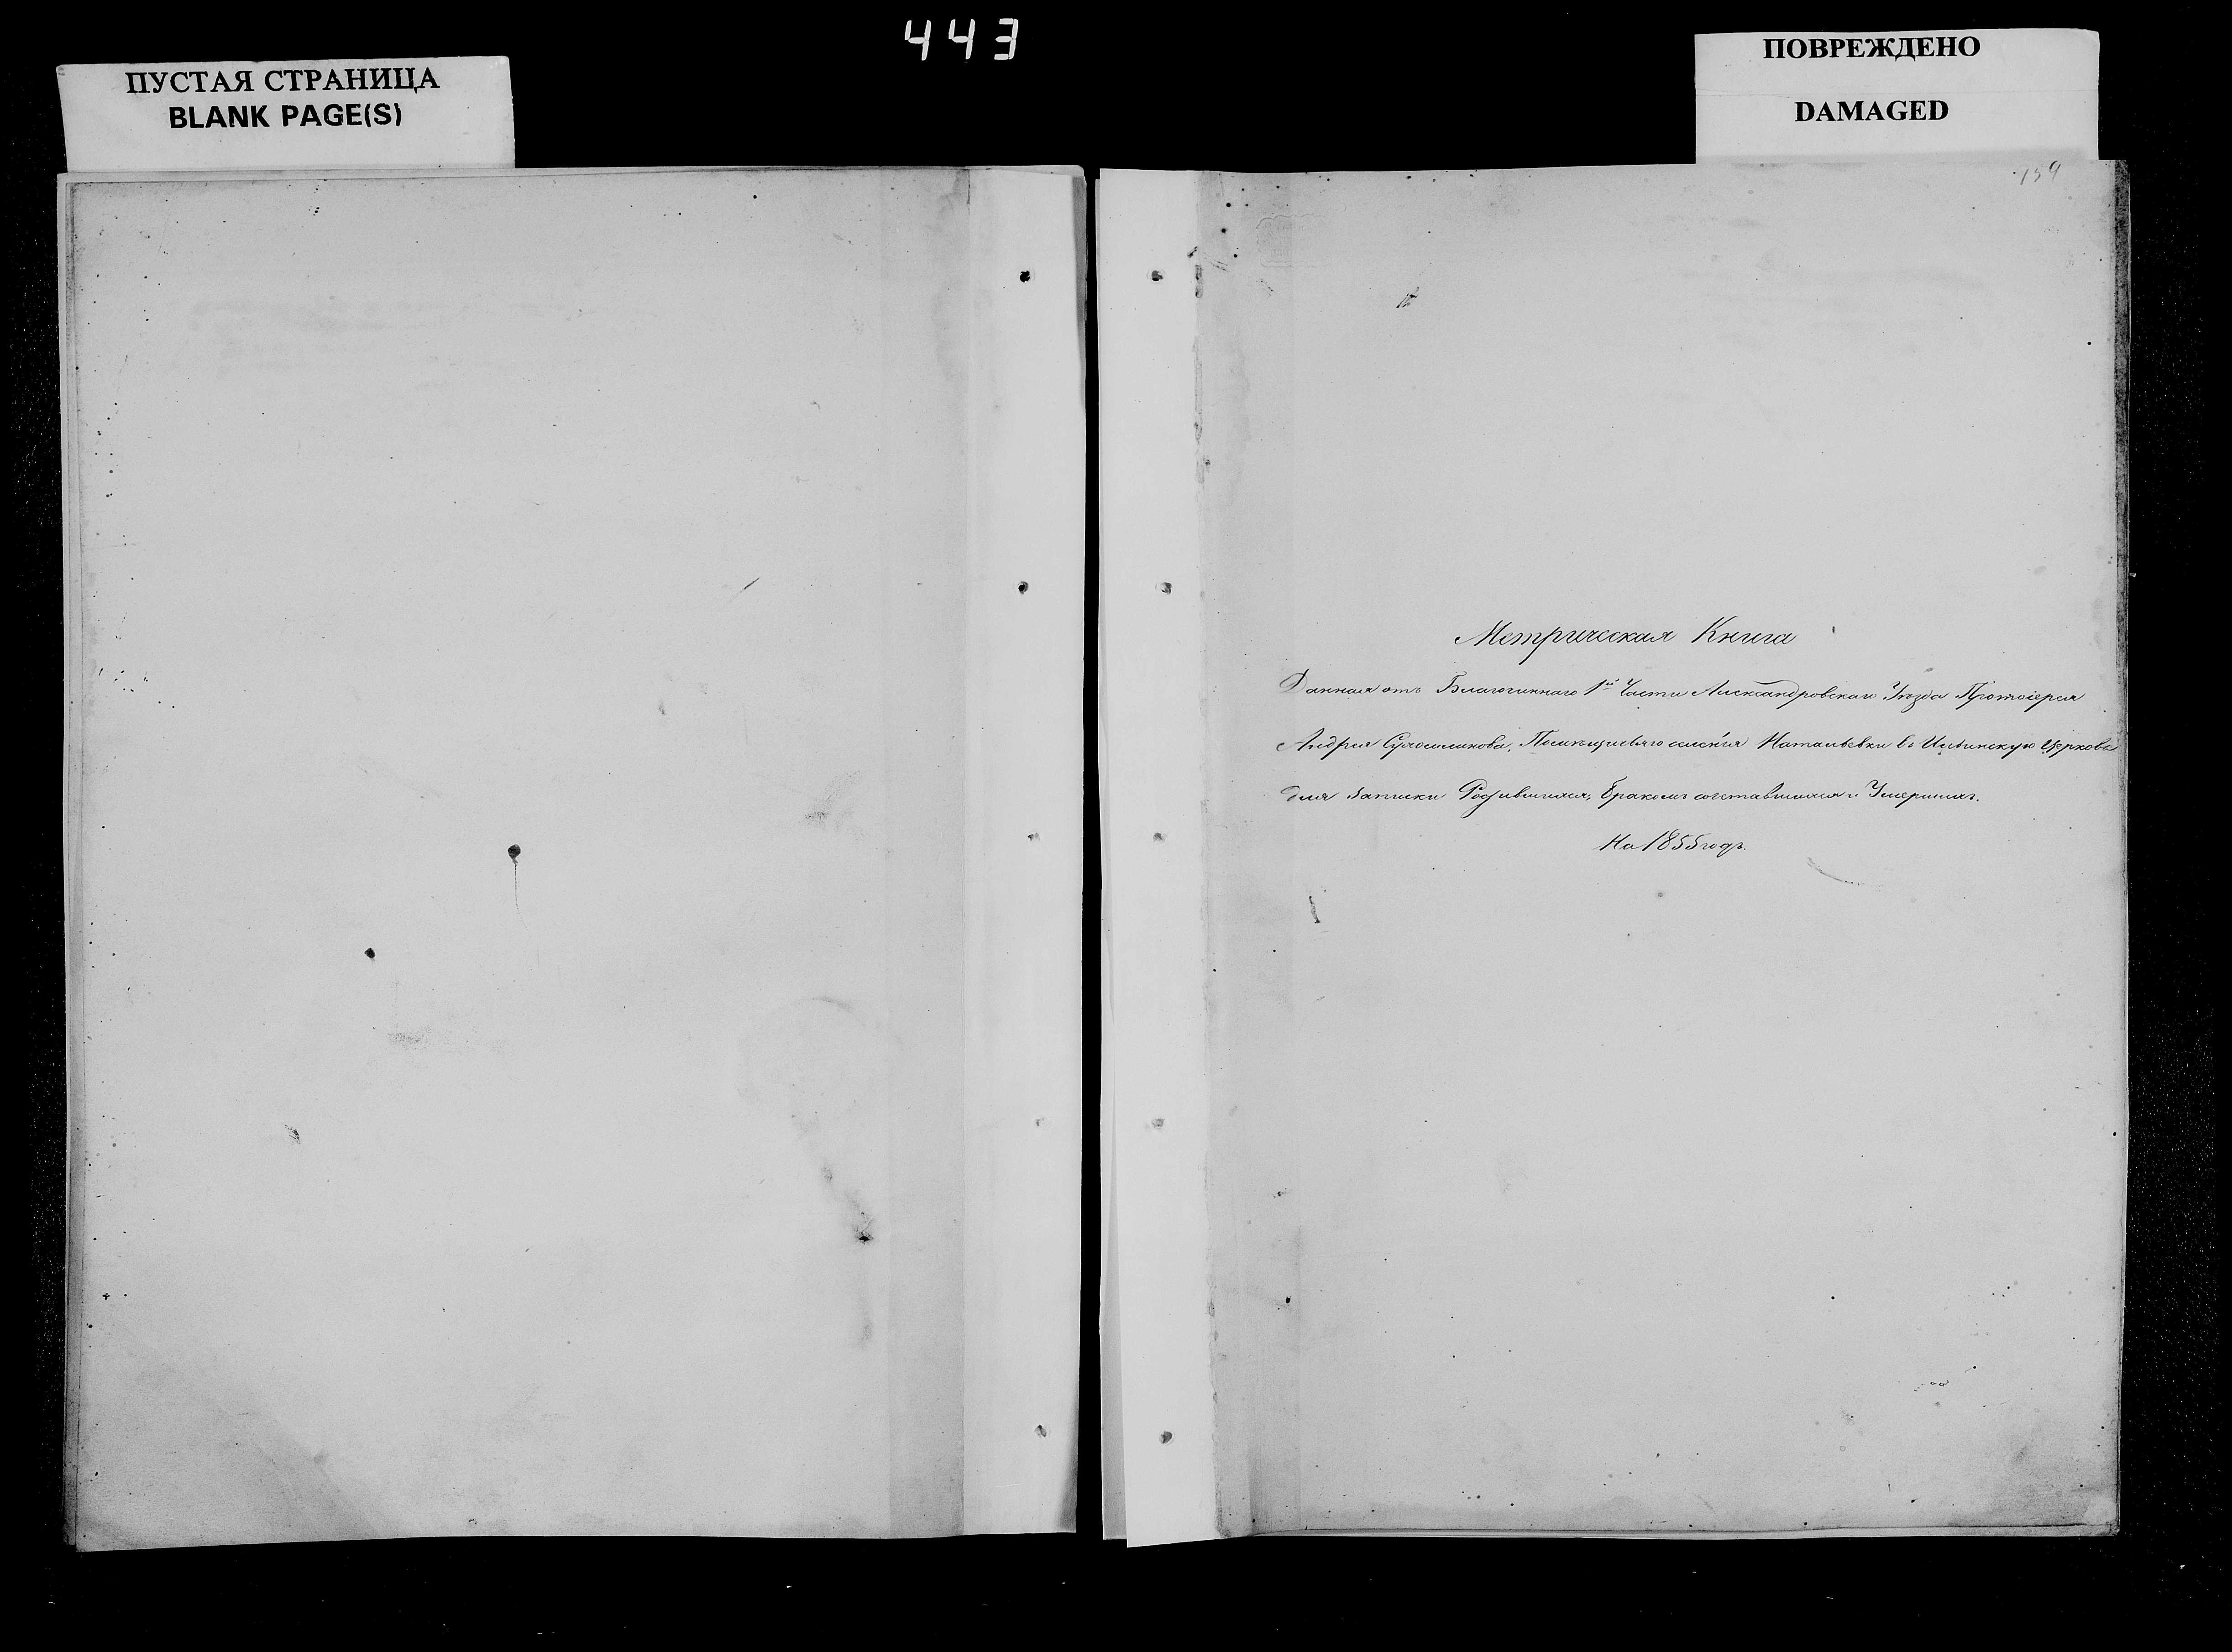 443
ПУСТАЯ СТРАНИЦА
BLANK PAGE(S)
ПОВРЕЖДЕНО
DAMAGED
159
Метрическая Книга
Данная отъ Благочиннаго 1й Части Александровскаго Уѣзда Протоіерея
Андрея Помѣщичьяго селенія Натальевки въ Ильинскую Церковь
для Записки Родившихся, Бракомъ сочетавшихся и Умершихъ.
На 1855 годъ.